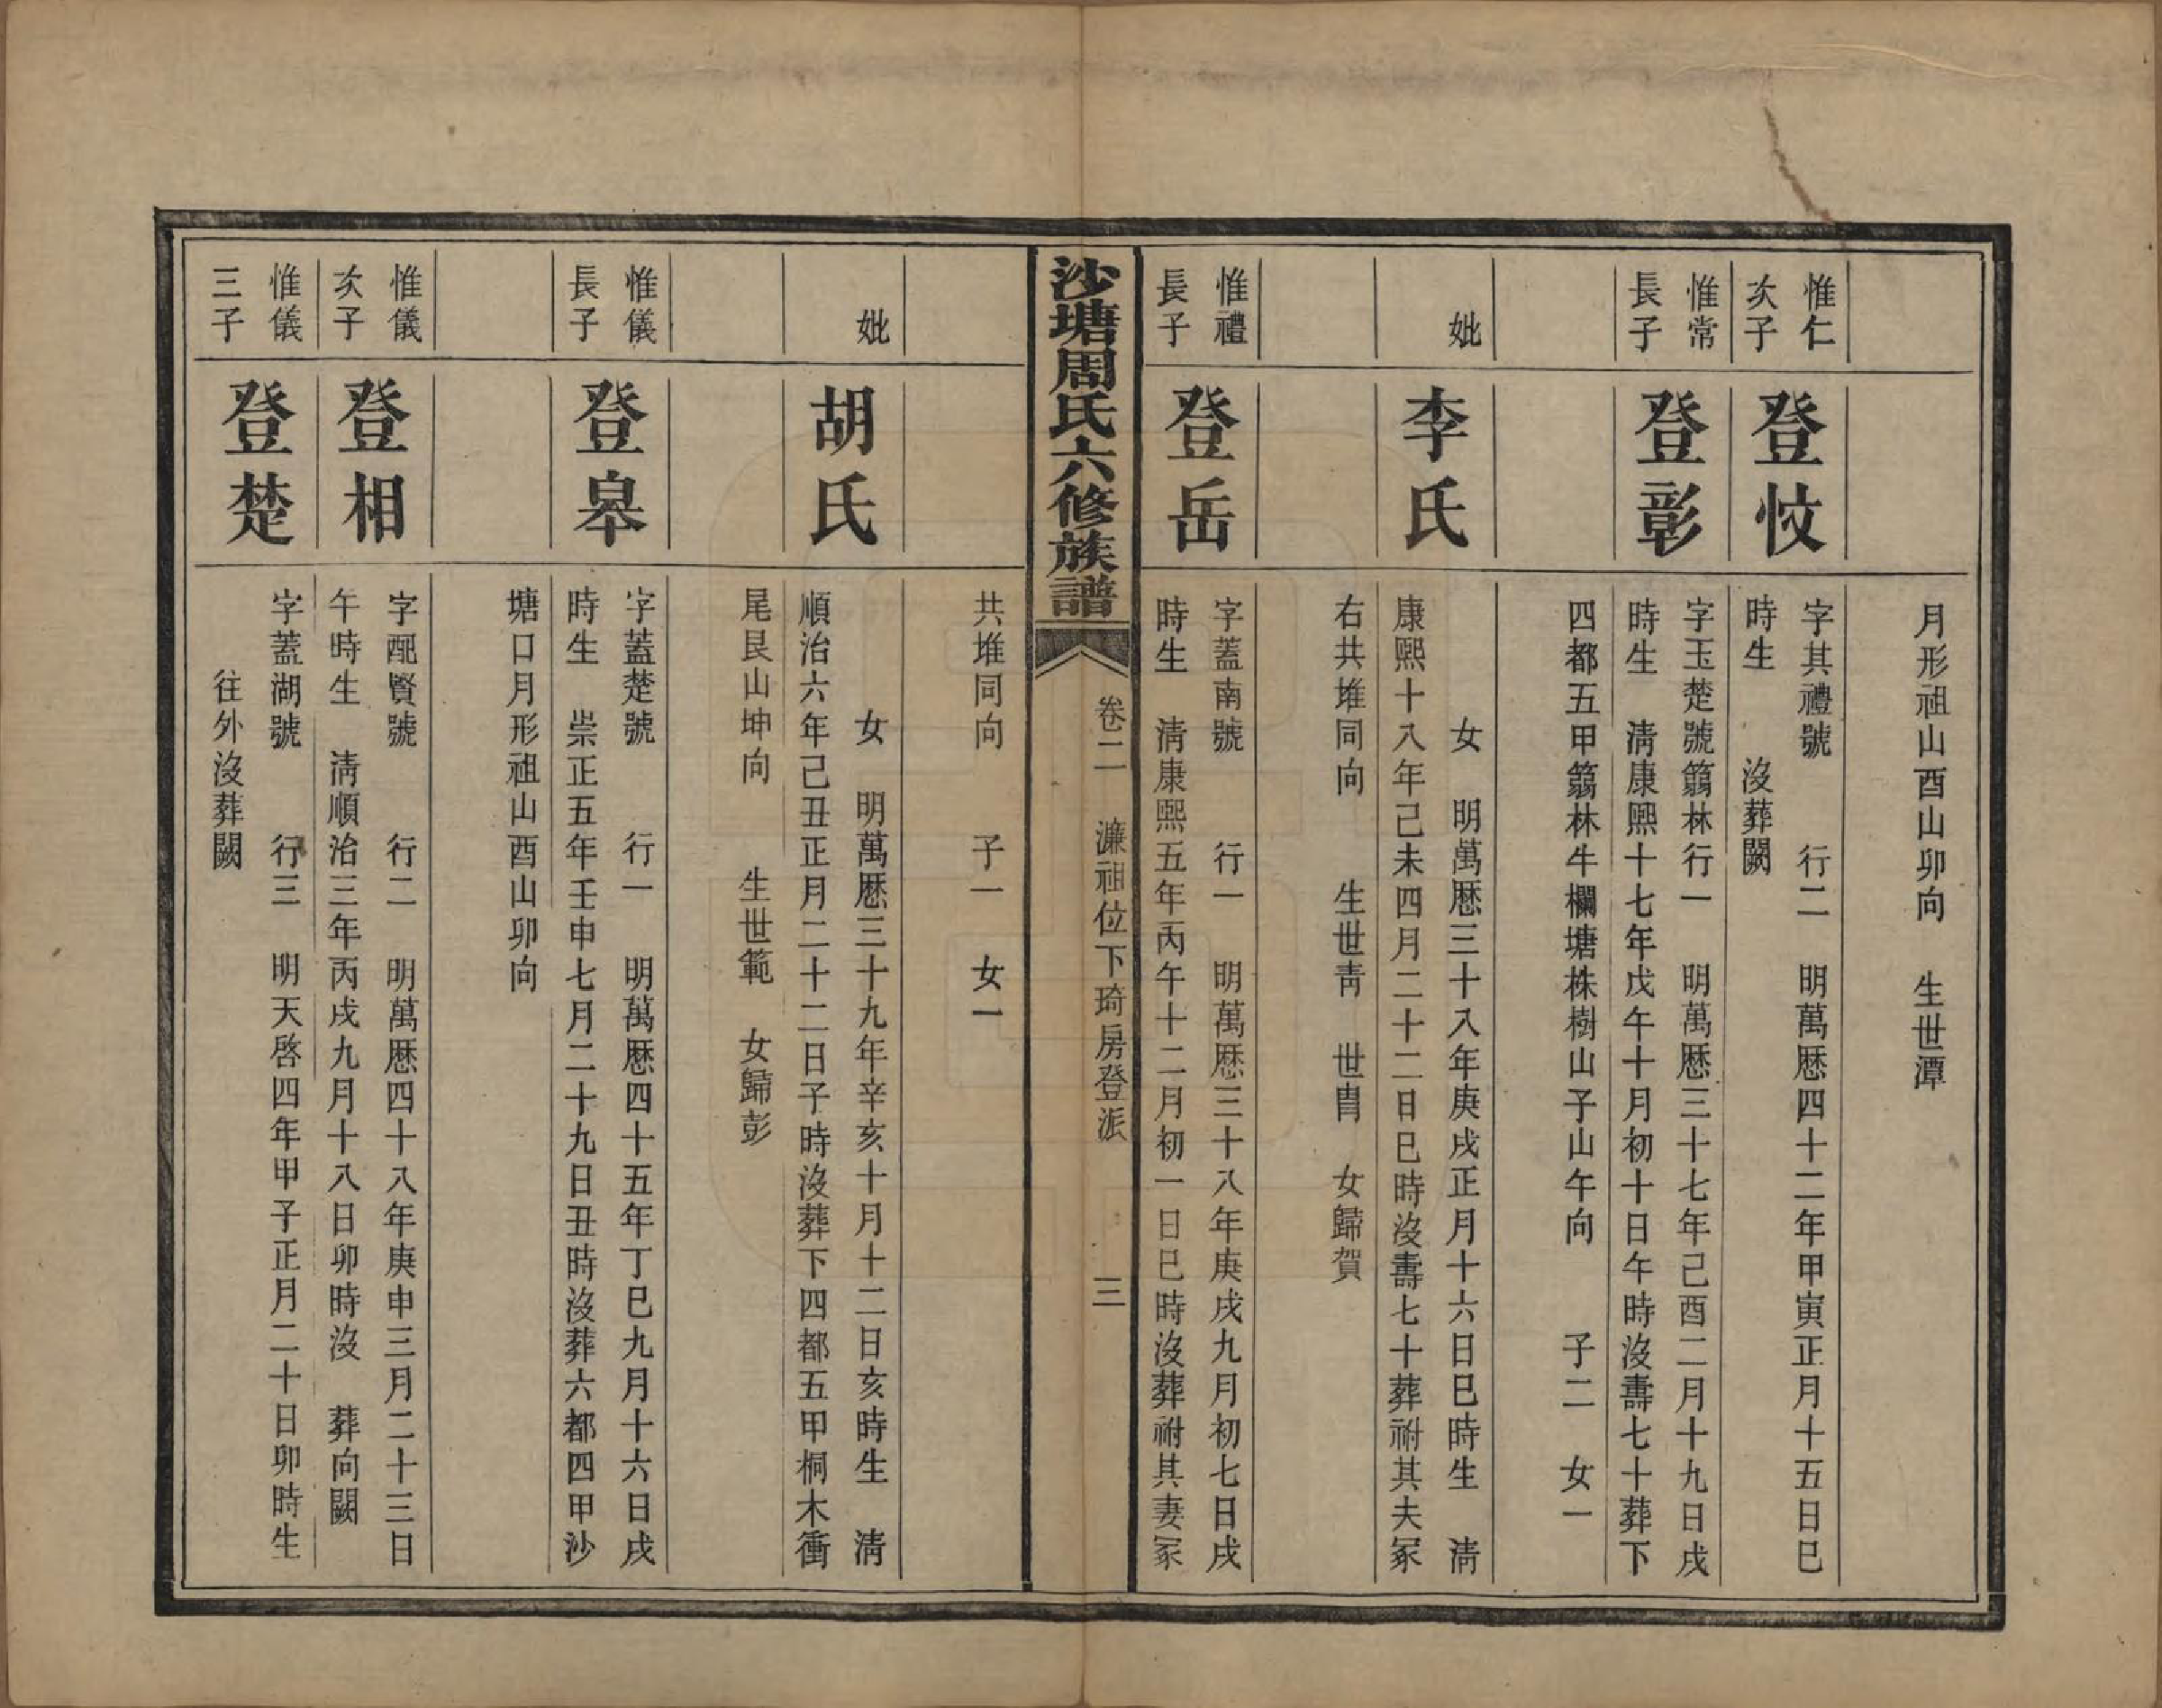 月形祖山酉山卯向　生世潭
惟仁
次子
登忟
字其禮號　　行二　明萬歷四十二年甲寅正月十五日巳
時生　　沒葬闕
惟常
長子
登彰
字玉楚號篛林行一　明萬歷三十七年己酉二月十九日戌
時生　清康熙十七年戊午十月初十日午時沒壽七十葬下
四都五甲篛林牛欄塘株樹山子山午向　　子二　女一
妣
李氏
女　明萬歷三十八年庚戌正月十六日巳時生　清
康熙十八年己未四月二十二日巳時沒壽七十葬祔其夫冢
右共堆同向　　生世靑　世胄　女歸賀
惟禮
長子
登岳
字蓋南號　　行一　明萬歷三十八年庚戌九月初七日戌
時生　清康熙五年丙午十二月初一日巳時沒葬祔其妻冢
沙塘周氏六修族譜
卷二　濂祖位下琦房登派　　三
共堆同向　　子一　女一
妣
胡氏
女　明萬歷三十九年辛亥十月十二日亥時生　清
順治六年己丑正月二十二日子時沒葬下四都五甲桐木衝
尾艮山坤向　　生世範　女歸彭
惟儀
長子
登皋
字蓋楚號　　行一　明萬歷四十五年丁巳九月十六日戌
時生　崇正五年壬申七月二十九日丑時沒葬六都四甲沙
塘口月形祖山酉山卯向
惟儀
次子
登相
字配賢號　　行二　明萬歷四十八年庚申三月二十三日
午時生　清順治三年丙戌九月十八日卯時沒　葬向闕
惟儀
三子
登楚
字蓋湖號　　行三　明天啓四年甲子正月二十日卯時生
往外沒葬闕